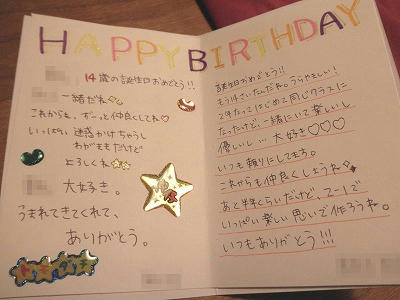 HAPPY BIRTHDAY
14歳の誕生日おめでとう!!
一緒だね
これからも、ずーっと仲良くしてね♡
いっぱい迷惑かけちゃうし
わがままだけど
よろしくね☆☆
大好き。
うまれてきてくれて、
ありがとう。
誕生日おめでとう!!
もう14さいなんだね。うらやましい!
2年たってはじめて同じクラスに
なったけど、一緒にいて楽しいし
優しいし…大好き♡♡♡
いつも頼りにしてます。
これからも仲良くしようね
あと半年くらいだけど、2-1で
いっぱい楽しい思いで作ろうね。
いつもありがとう!!!